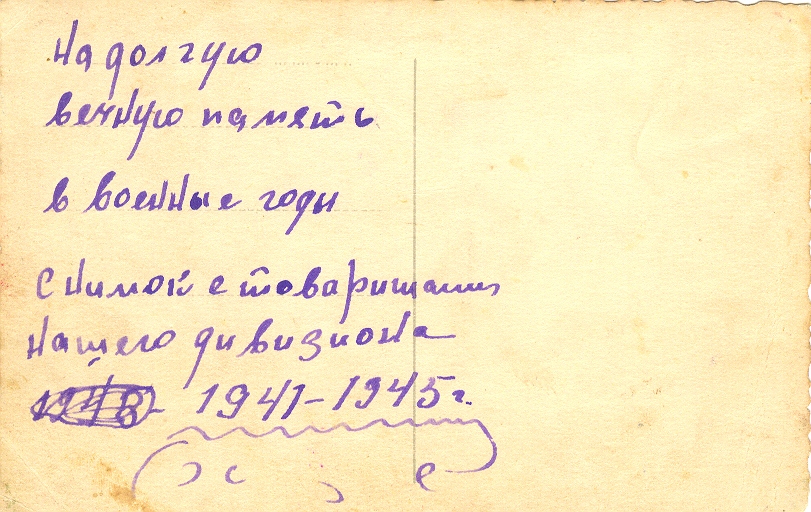 на долгую
вечную память
в военные годы
снимок с товарищами
нашего дивизиона
1941-1945 г.